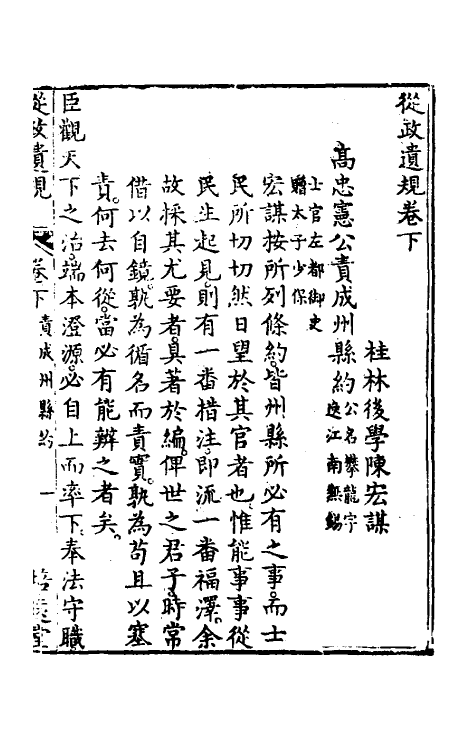 從政遺規卷下
桂林後學陳宏謀
高忠憲公責成州縣約公名攀龍字
逵江南無錫
士官左都御史
贈太子少保
宏謀按所列條約皆州縣所必有之事而士
民所切切然日望於其官者也惟能事事從
民生起見則有一番措注即流一番福澤余
故採其尤要者具著於編俾世之君子時常
借以自鏡孰為循名而責實孰為苟且以塞
責何去何從當必有能辨之者矣
臣觀天下之治端本澄源必自上而率下奉法守職
從政遺規 卷下 責成州縣約 一 培遠堂